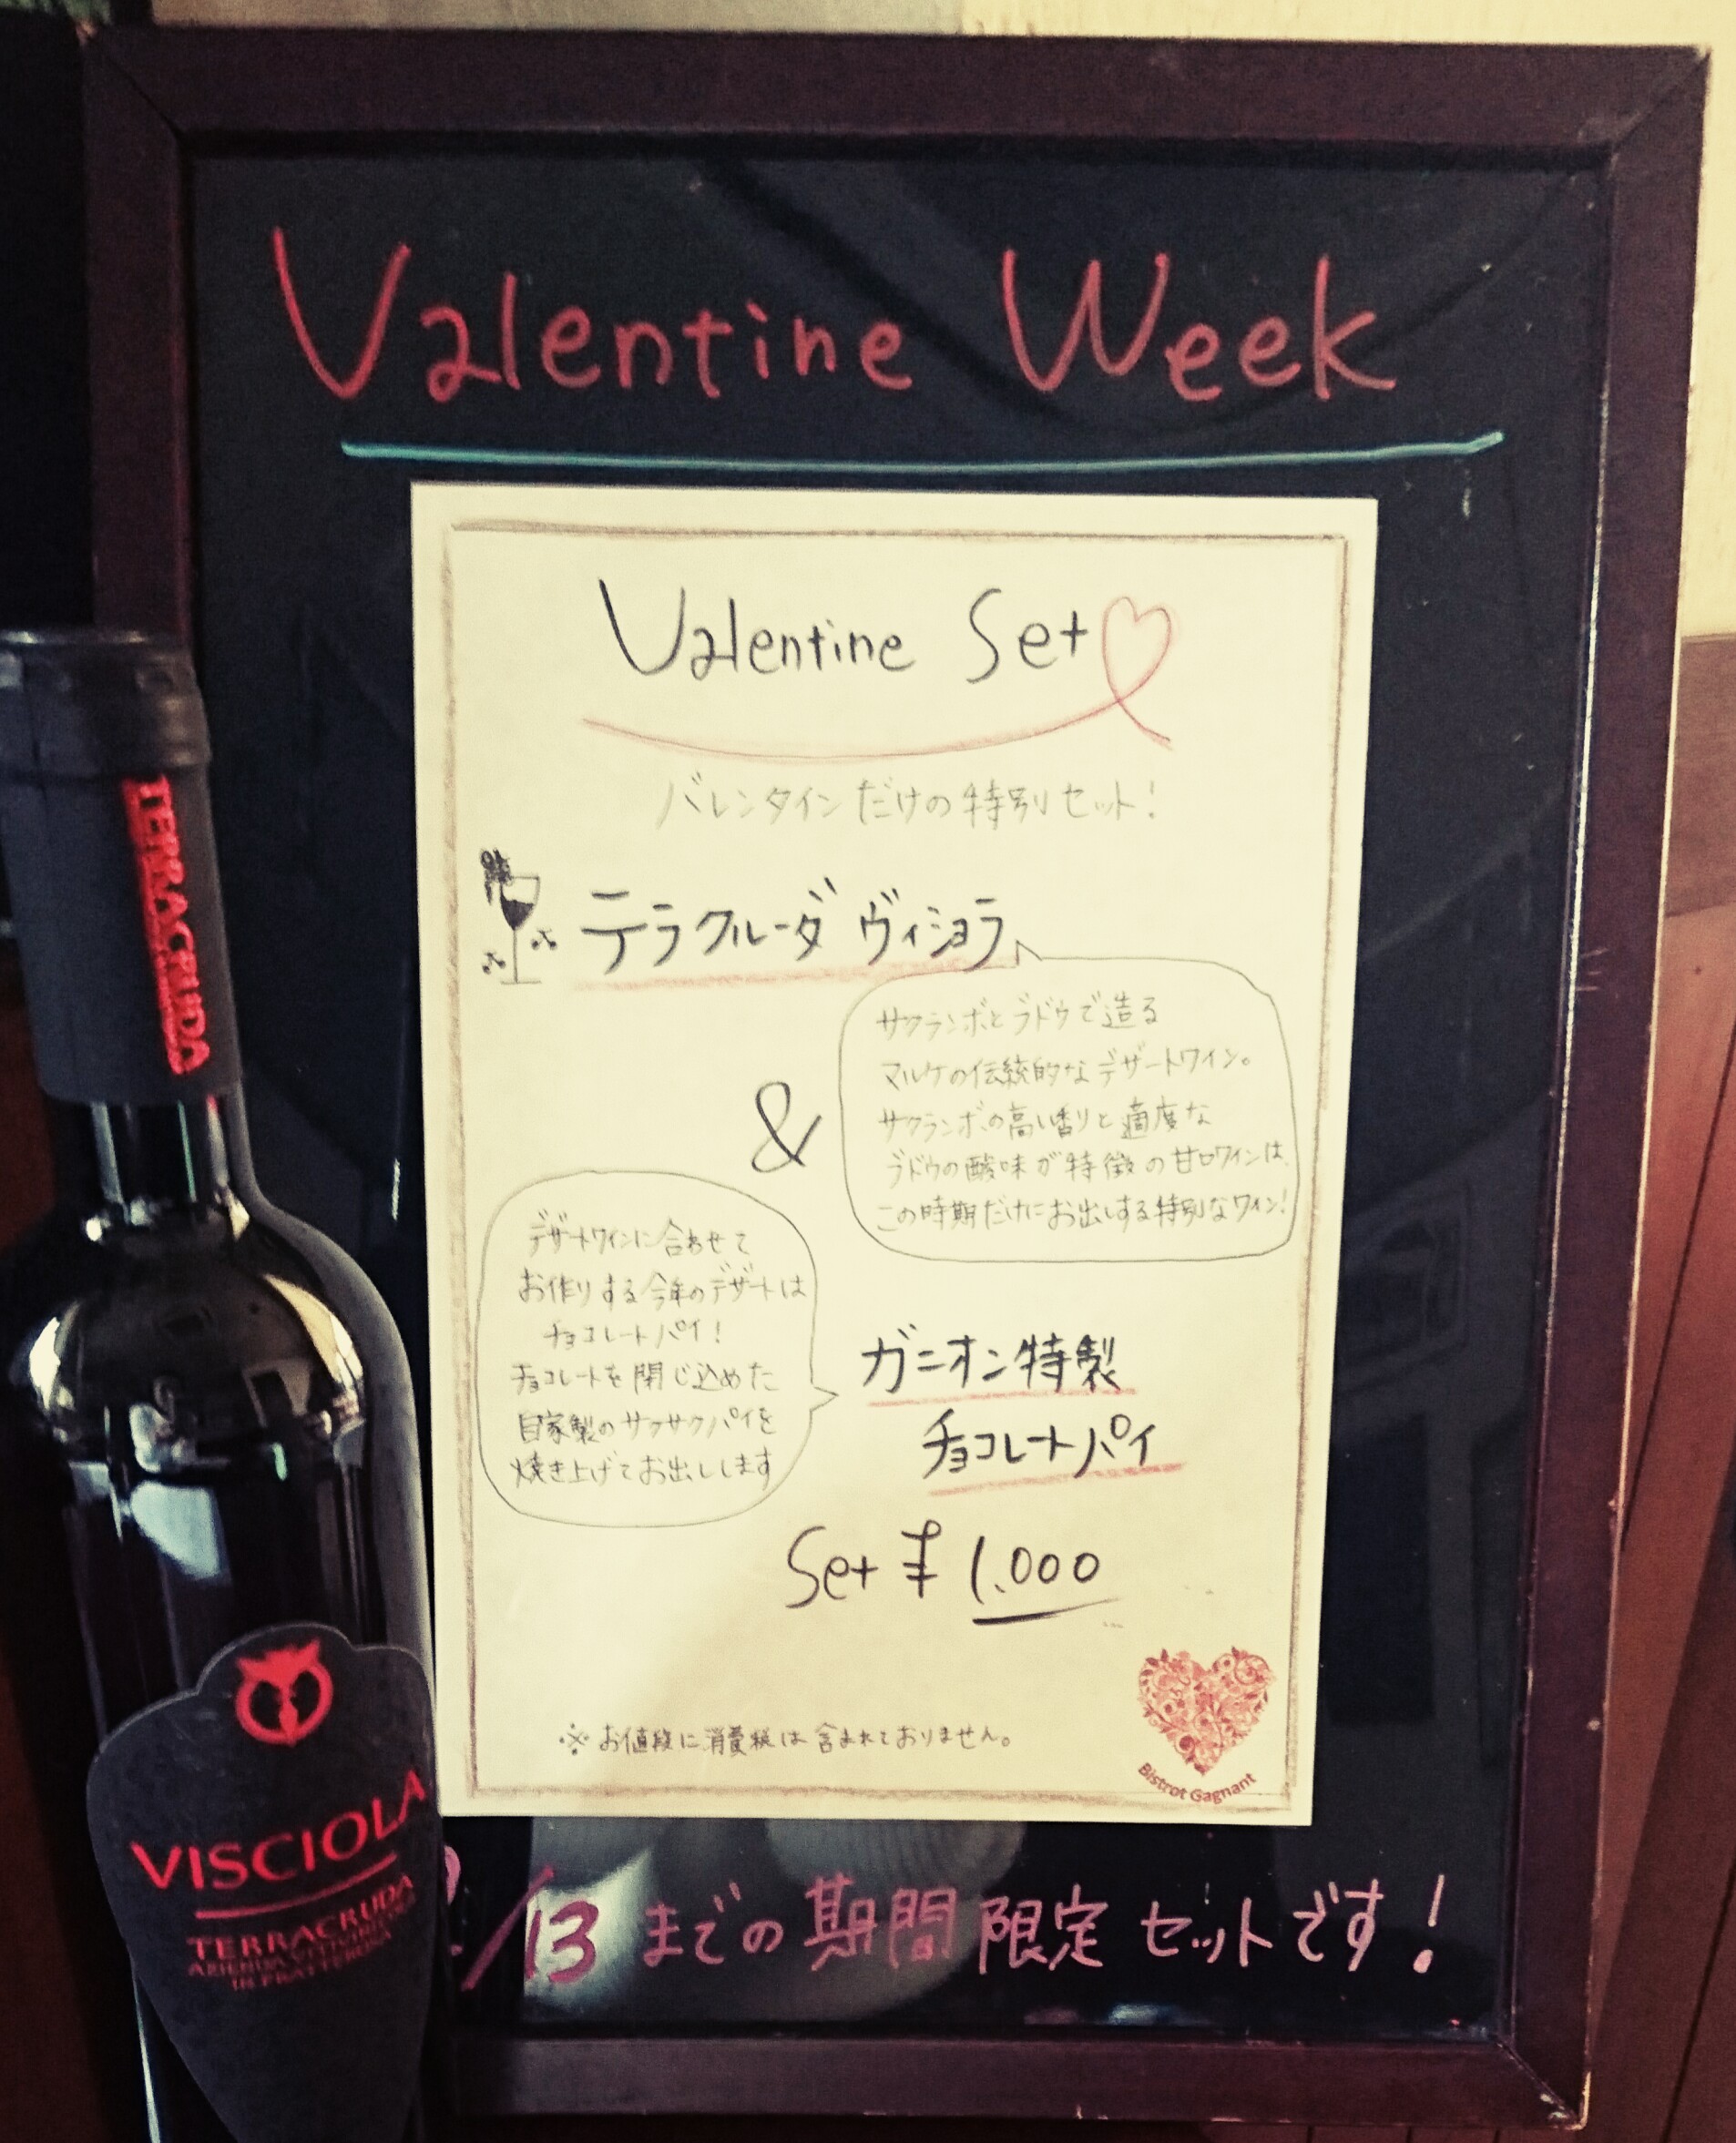 Valentine Week
Valentine Set
バレンタインだけの特別セット!
テラクルーダ ヴィショラ
サクランボとブドウで造る
マルケの伝統的なデザートワイン。
サクランボの高い香りと適度な
ブドウの酸味が特徴の甘口ワインは、
この時期だけにお出しする特別なワイン!
&
デザートワインに合わせて
お作りする今年のデザートは
チョコレートパイ!
チョコレートを閉じ込めた
自家製のサクサクパイを
焼き上げてお出しします
ガニオン特製
チョコレートパイ
Set ¥ 1.000
※お値段に消費税は含まれておりません。
Bistrot Gagnant
2/13 までの期間限定セットです!
TERRACRUDA
VISCIOLA
TERRACRUDA
AZIENDA VITIVINICOLA
IN FRATTEROSA